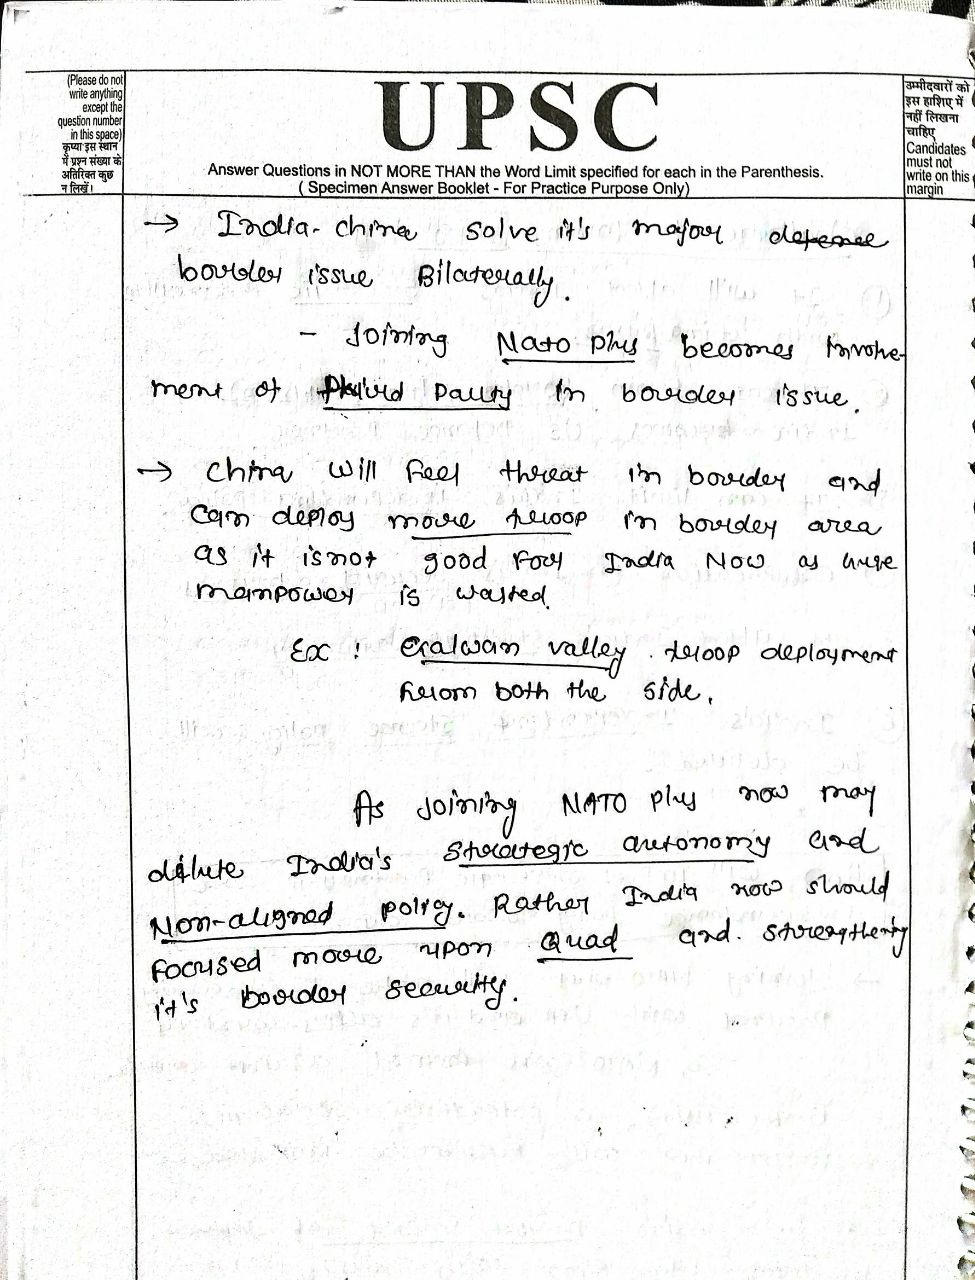 (Please do not
write anything
except the
question number
in this space)
कृप्या इस स्थान
में प्रश्न संख्या के
अतिरिक्त कुछ
न लिखें।
UPSC
Answer Questions in NOT MORE THAN the Word Limit specified for each in the Parenthesis.
( Specimen Answer Booklet - For Practice Purpose Only)
उम्मीदवारों को
इस हाशिए में
नहीं लिखना
चाहिए
Candidates
must not
write on this
margin
→ India-china solve it's major defence
border issue Bilaterally.
- Joining Nato plus becomes involve-
ment of third party in border issue.
→ china will feel threat in border and
can deploy more troop in border area
as it is not good for India Now as huge
manpower is wasted.
Ex : Galwan valley . troop deployment
from both the side.
As Joining NATO plus now may
dilute India's strategic autonomy and
Non-aligned policy. Rather India now should
focused more upon Quad and strengthening
it's border security.